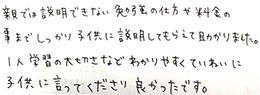 親では説明できない勉強の仕方や料金の
事までしっかり子供に説明してもらえて助かりました。
1人学習の大切さなどわかりやすくていねいに
子供に言ってくださり良かったです。